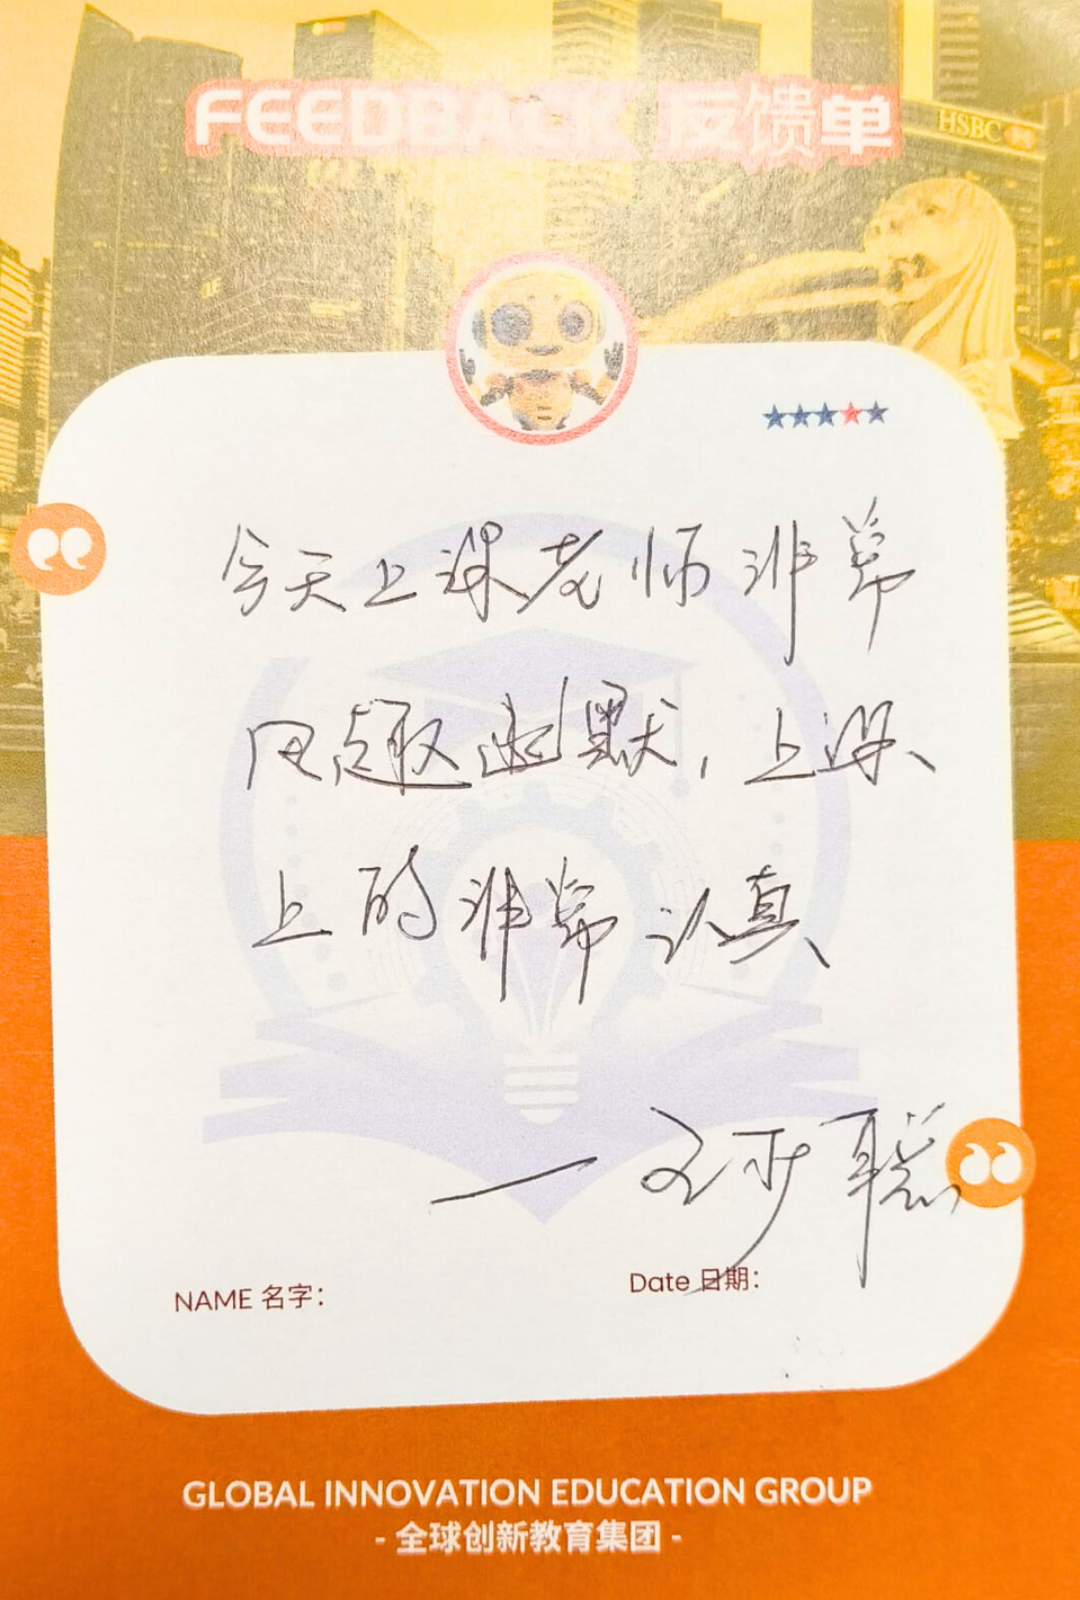 FEEDBACK 反馈单
HSBC
今天上课老师非常
风趣幽默，上课
上的非常认真
NAME 名字：
Date 日期：
GLOBAL INNOVATION EDUCATION GROUP
- 全球创新教育集团 -